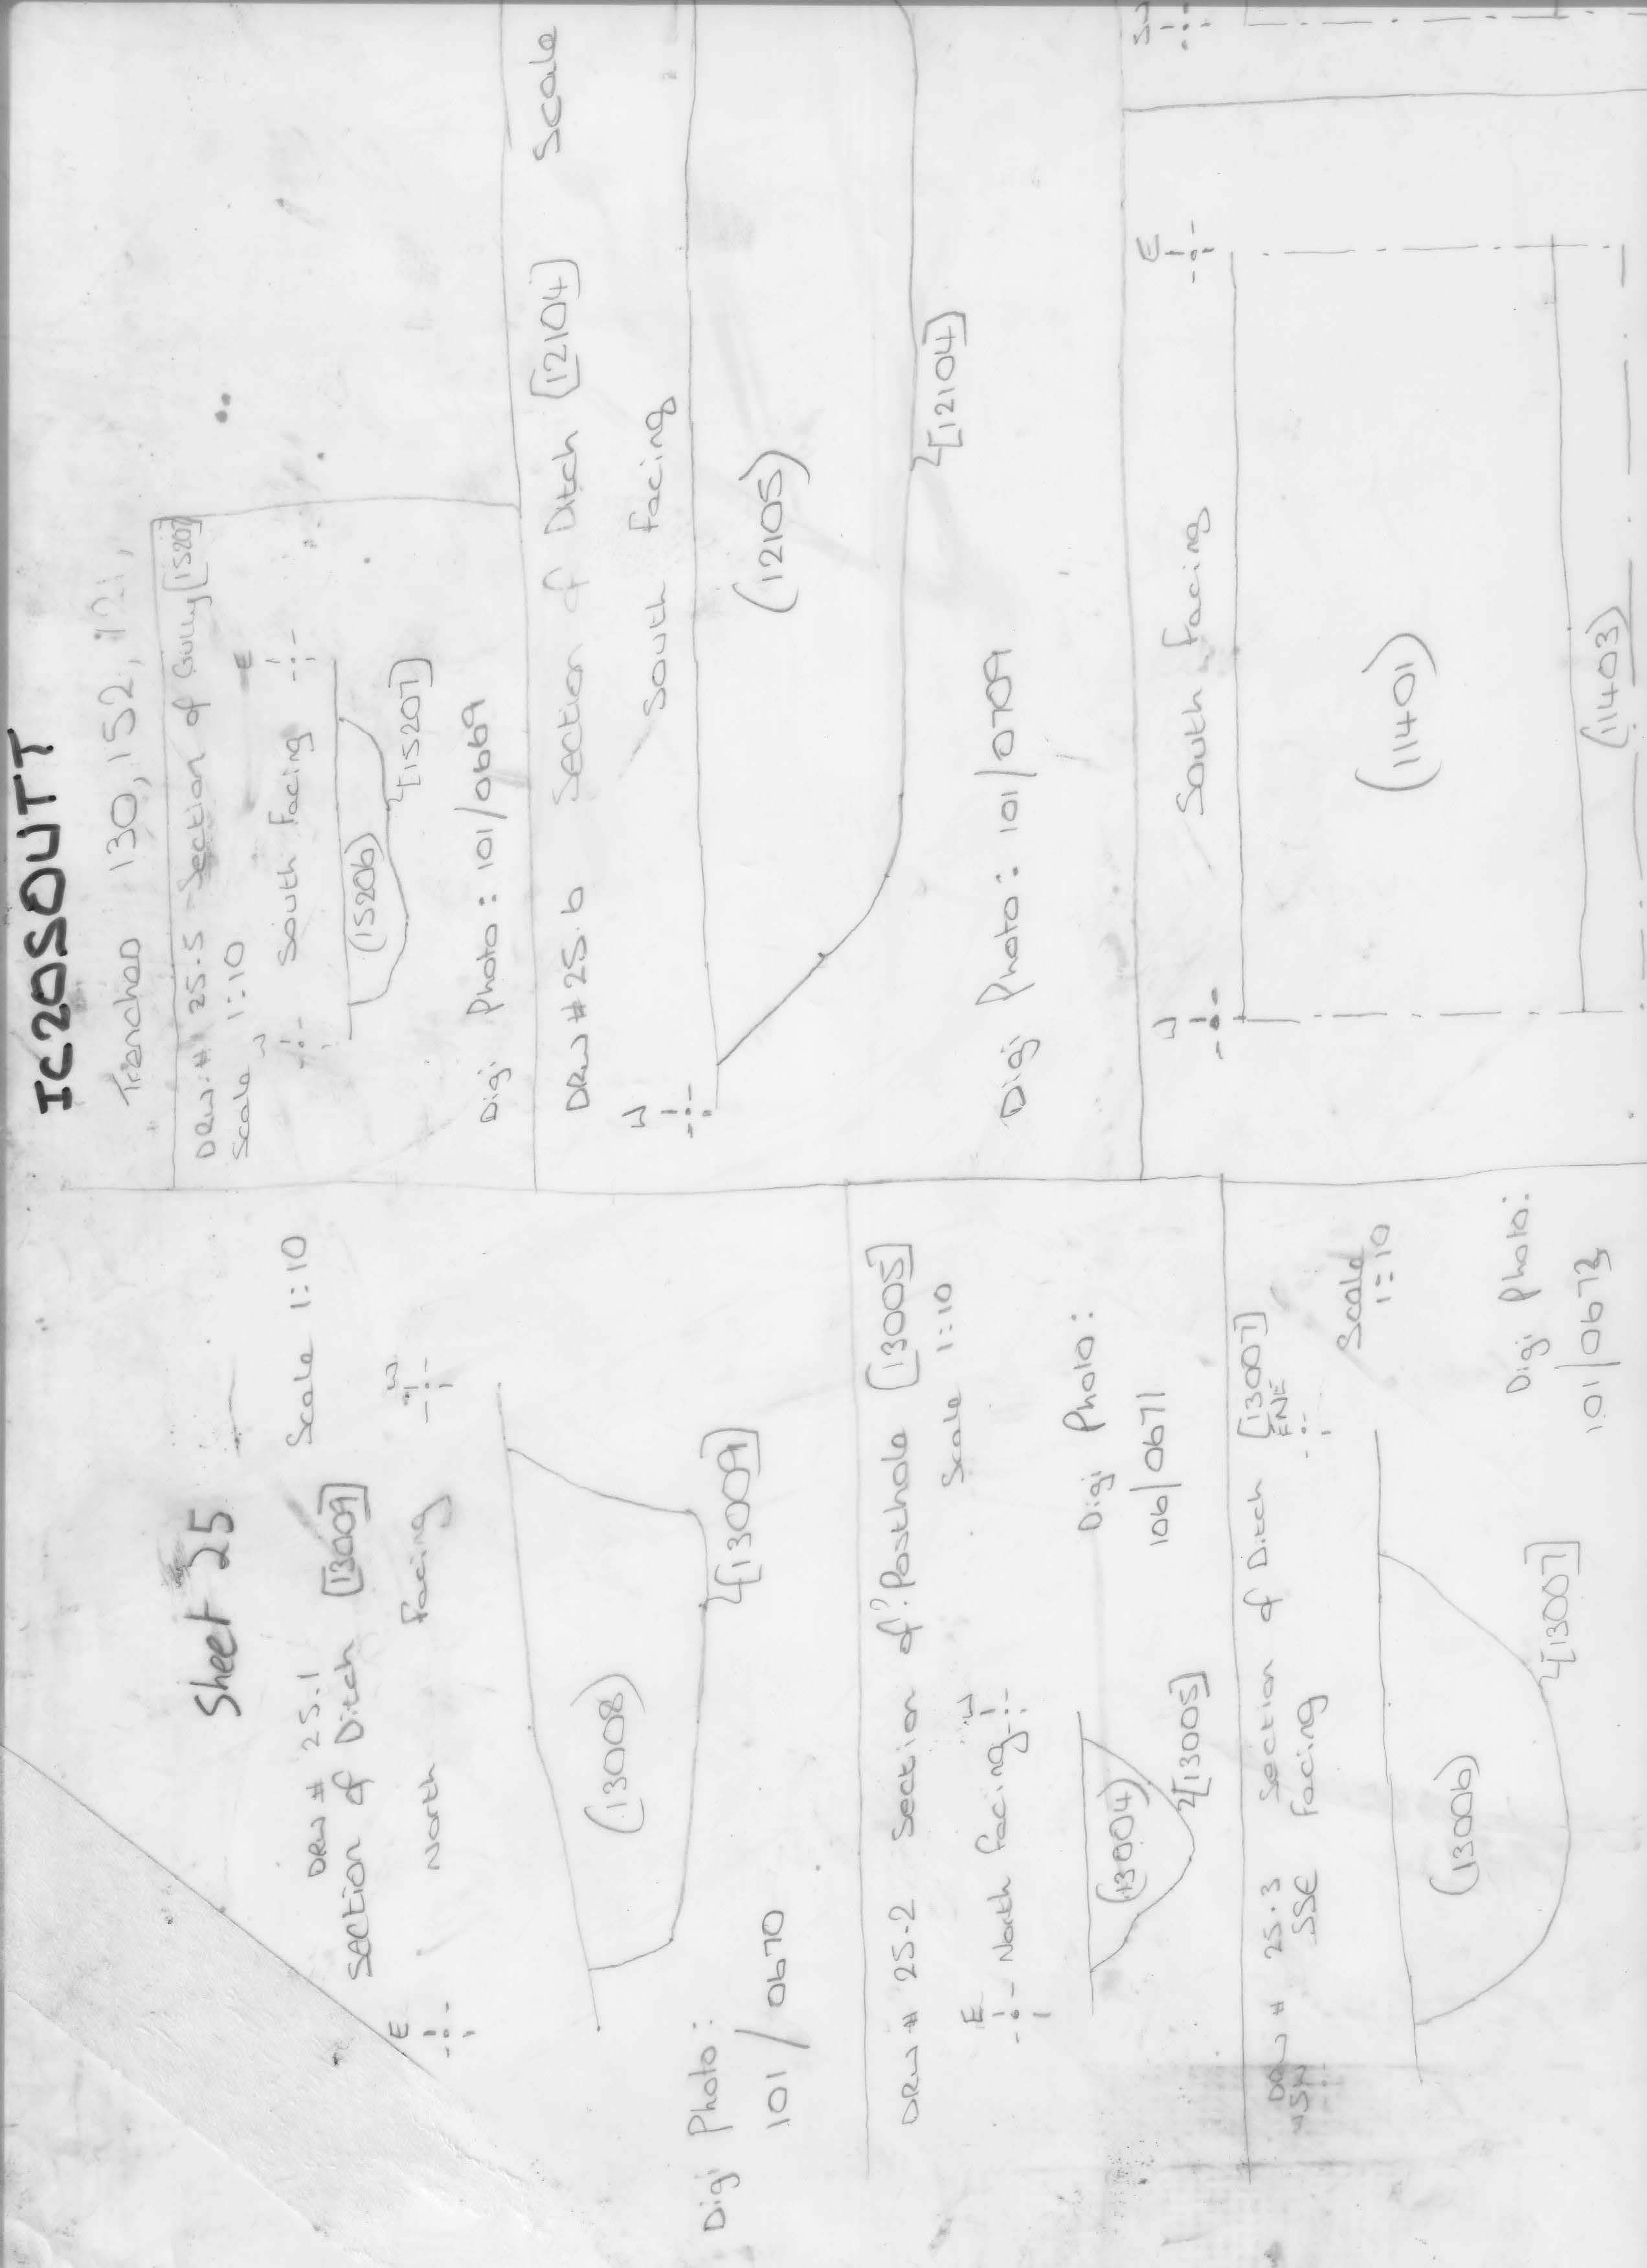 IC20SOUTT
Sheet 25
Trenches 130, 152, 121,
DRW # 25.1
Section of Ditch [13009] Scale 1:10
E North Facing W
(13008)
[13009]
Digi Photo:
101/0670
DRW # 25.2 Section of ?Posthole [13005]
Scale 1:10
E North Facing W
(13004)
[13005]
Digi Photo:
106/0671
DRW # 25.3 Section of Ditch [13007]
SSE Facing ENE
Scale
1:10
(13006)
[13007]
Digi Photo:
DRW:# 25.5 Section of Gully [15207]
Scale 1:10
W South Facing E
(15206)
[15207]
Digi Photo: 101/0669
DRW # 25.6 Section of Ditch [12104] Scale
W South Facing
(12105)
[12104]
Digi Photo: 101/0709
W South Facing E
(11401)
(11403)